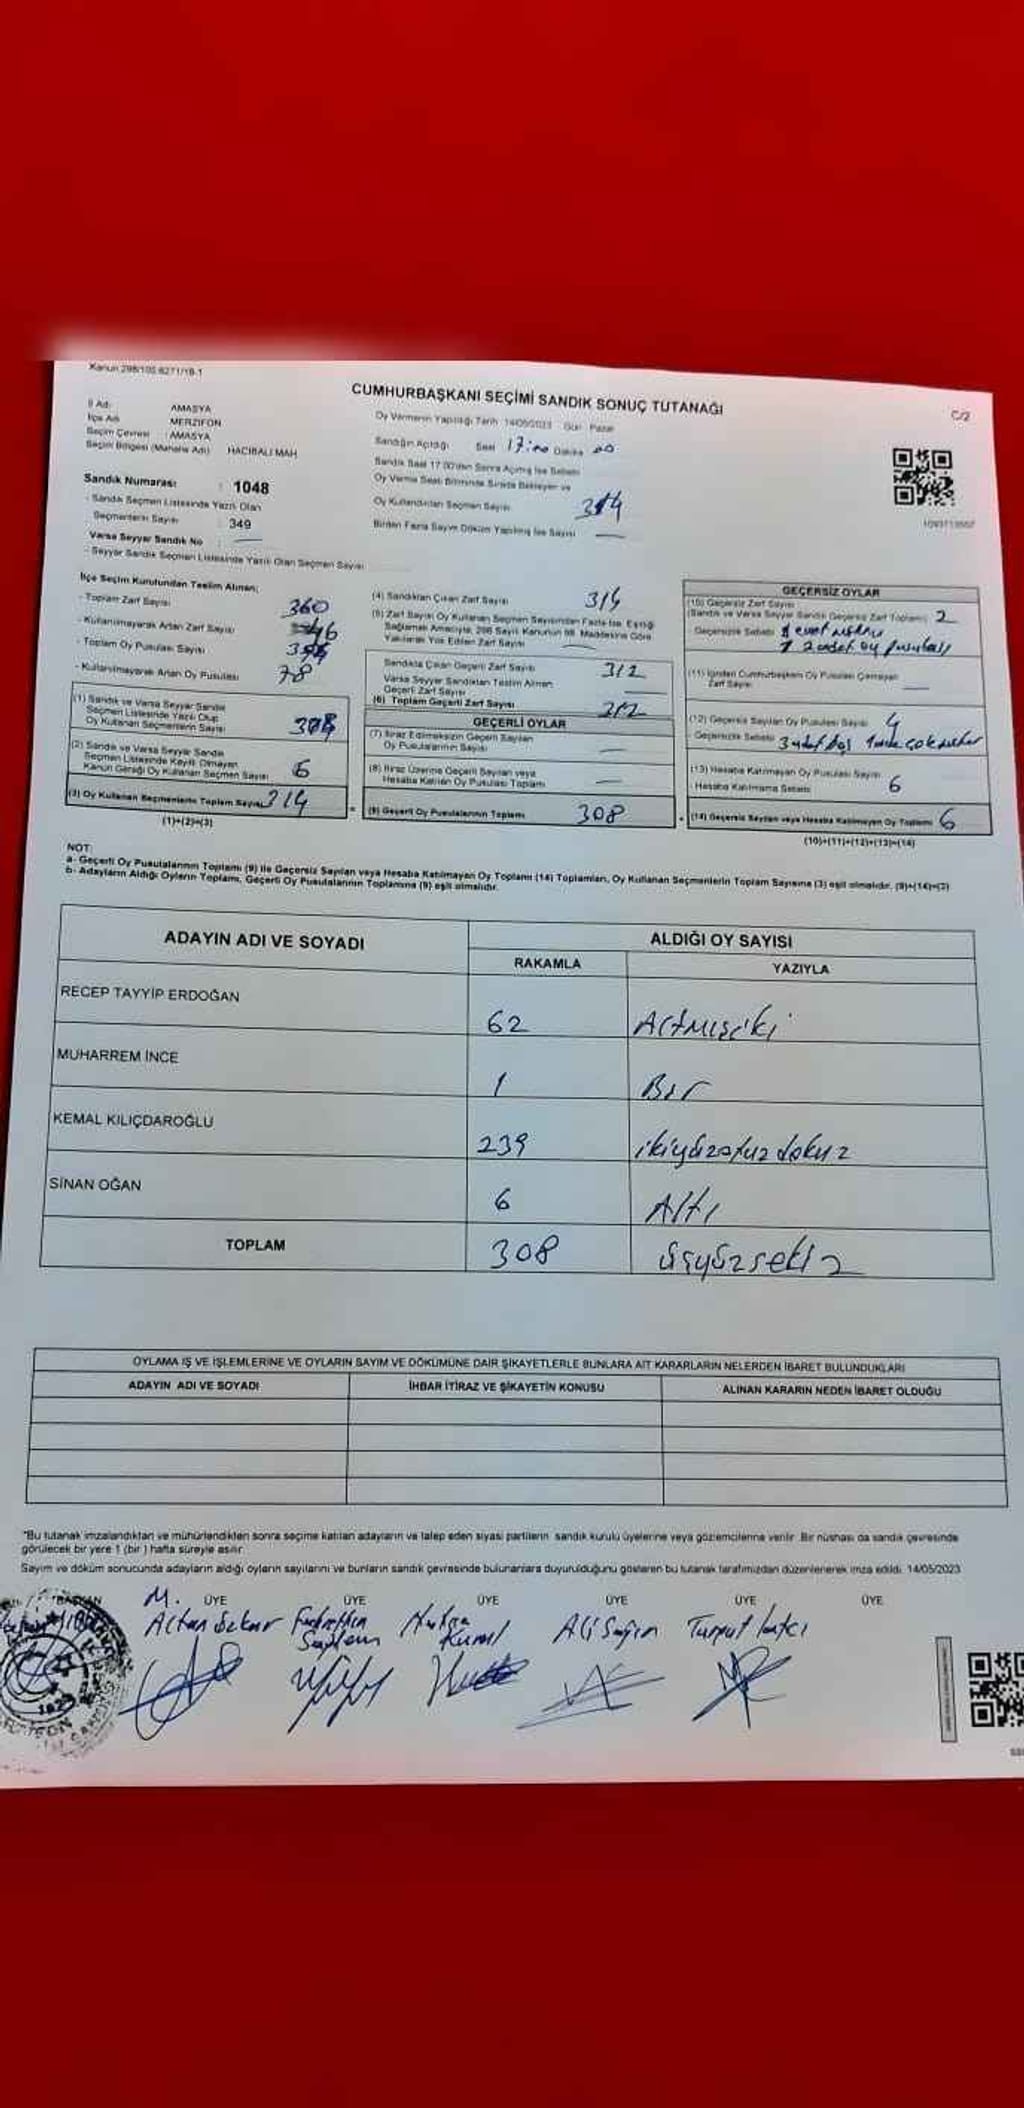 Kanun 298/105 6271/18-1
CUMHURBAŞKANI SEÇİMİ SANDIK SONUÇ TUTANAĞI
C/2
İl Adı: AMASYA
İlçe Adı MERZİFON
Seçim Çevresi : AMASYA
Seçim Bölgesi (Mahalle Adı) HACIBALI MAH
Oy Vermenin Yapıldığı Tarih 14/05/2023 Gün Pazar
Sandığın Açıldığı Saat 17:00 Dakika 00
Sandık Saat 17.00'den Sonra Açılmış İse Sebebi
Oy Verme Saati Bitiminde Sırada Bekleyen ve
Oy Kullandırılan Seçmen Sayısı 314
Birden Fazla Sayım Döküm Yapılmış İse Sayısı —
Sandık Numarası : 1048
- Sandık Seçmen Listesinde Yazılı Olan
Seçmenlerin Sayısı : 349
Varsa Seyyar Sandık No : —
- Seyyar Sandık Seçmen Listesinde Yazılı Olan Seçmen Sayısı
İlçe Seçim Kurulundan Teslim Alınan;
- Toplam Zarf Sayısı 360
- Kullanılmayarak Artan Zarf Sayısı 46
- Toplam Oy Pusulası Sayısı
- Kullanılmayarak Artan Oy Pusulası 78
(1) Sandık ve Varsa Seyyar Sandık
Seçmen Listesinde Yazılı Olup
Oy Kullanan Seçmenlerin Sayısı 308
(2) Sandık ve Varsa Seyyar Sandık
Seçmen Listesinde Kayıtlı Olmayan
Kanun Gereği Oy Kullanan Seçmen Sayısı 6
(3) Oy Kullanan Seçmenlerin Toplam Sayısı 314
(1)+(2)=(3)
(4) Sandıktan Çıkan Zarf Sayısı 314
(5) Zarf Sayısı Oy Kullanan Seçmen Sayısından Fazla İse, Eşitliği
Sağlamak Amacıyla, 298 Sayılı Kanunun 98. Maddesine Göre
Yakılarak Yok Edilen Zarf Sayısı —
Sandıkta Çıkan Geçerli Zarf Sayısı 312
Varsa Seyyar Sandıktan Teslim Alınan
Geçerli Zarf Sayısı —
(6) Toplam Geçerli Zarf Sayısı 312
GEÇERLİ OYLAR
(7) İtiraz Edilmeksizin Geçerli Sayılan
Oy Pusulalarının Sayısı —
(8) İtiraz Üzerine Geçerli Sayılan veya
Hesaba Katılan Oy Pusulası Toplamı —
(9) Geçerli Oy Pusulalarının Toplamı 308
GEÇERSİZ OYLAR
(10) Geçersiz Zarf Sayısı
(Sandık ve Varsa Seyyar Sandık Geçersiz Zarf Toplamı) 2
Geçersizlik Sebebi 1 evet mührü
1 2 adet oy pusulası
(11) İçinden Cumhurbaşkanı Oy Pusulası Çıkmayan
Zarf Sayısı —
(12) Geçersiz Sayılan Oy Pusulası Sayısı 4
Geçersizlik Sebebi 3 adet boş 1 tane çok mühür
(13) Hesaba Katılmayan Oy Pusulası Sayısı 6
Hesaba Katılmama Sebebi
(14) Geçersiz Sayılan veya Hesaba Katılmayan Oy Toplamı 6
(10)+(11)+(12)+(13)=(14)
NOT:
a- Geçerli Oy Pusulalarının Toplamı (9) ile Geçersiz Sayılan veya Hesaba Katılmayan Oy Toplamı (14) Toplamları, Oy Kullanan Seçmenlerin Toplam Sayısına (3) eşit olmalıdır. (9)+(14)=(3)
b- Adayların Aldığı Oyların Toplamı, Geçerli Oy Pusulalarının Toplamına (9) eşit olmalıdır.
ADAYIN ADI VE SOYADI ALDIĞI OY SAYISI
RAKAMLA YAZIYLA
RECEP TAYYİP ERDOĞAN 62 Altmışiki
MUHARREM İNCE 1 Bir
KEMAL KILIÇDAROĞLU 239 ikiyüzotuzdokuz
SİNAN OĞAN 6 Altı
TOPLAM 308 üçyüzsekiz
OYLAMA İŞ VE İŞLEMLERİNE VE OYLARIN SAYIM VE DÖKÜMÜNE DAİR ŞİKAYETLERLE BUNLARA AİT KARARLARIN NELERDEN İBARET BULUNDUKLARI
ADAYIN ADI VE SOYADI İHBAR İTİRAZ VE ŞİKAYETİN KONUSU ALINAN KARARIN NEDEN İBARET OLDUĞU
*Bu tutanak imzalandıktan ve mühürlendikten sonra seçime katılan adayların ve talep eden siyasi partilerin sandık kurulu üyelerine veya gözlemcilerine verilir. Bir nüshası da sandık çevresinde
görülecek bir yere 1 (bir) hafta süreyle asılır.
Sayım ve döküm sonucunda adayların aldığı oyların sayılarını ve bunların sandık çevresinde bulunanlara duyurulduğunu gösteren bu tutanak tarafımızdan düzenlenerek imza edildi. 14/05/2023
BAŞKAN ÜYE ÜYE ÜYE ÜYE ÜYE ÜYE
M. Altan Fahrettin Ali Turgut
Sağlam